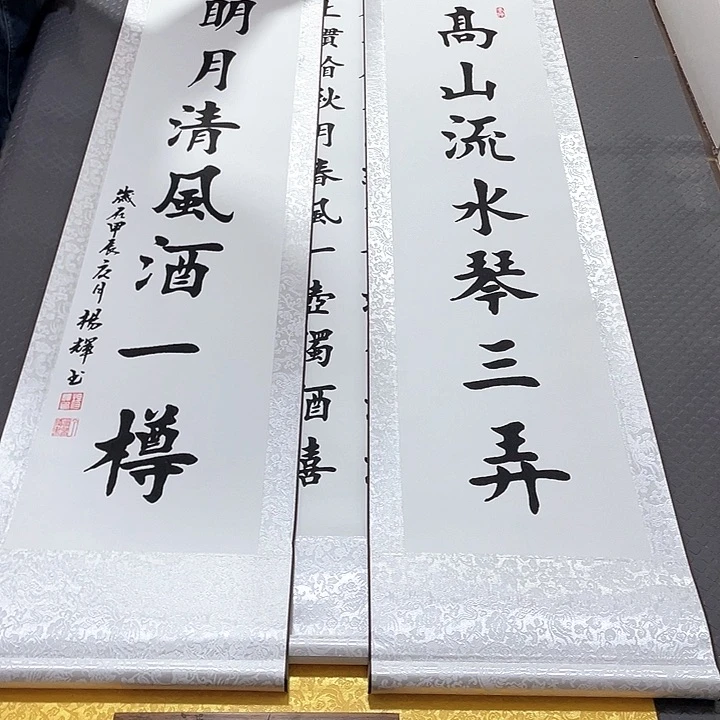 高山流水琴三弄
一壺濁酒喜
秋月春風
明月清風酒一樽
歲在甲辰
楊輝書